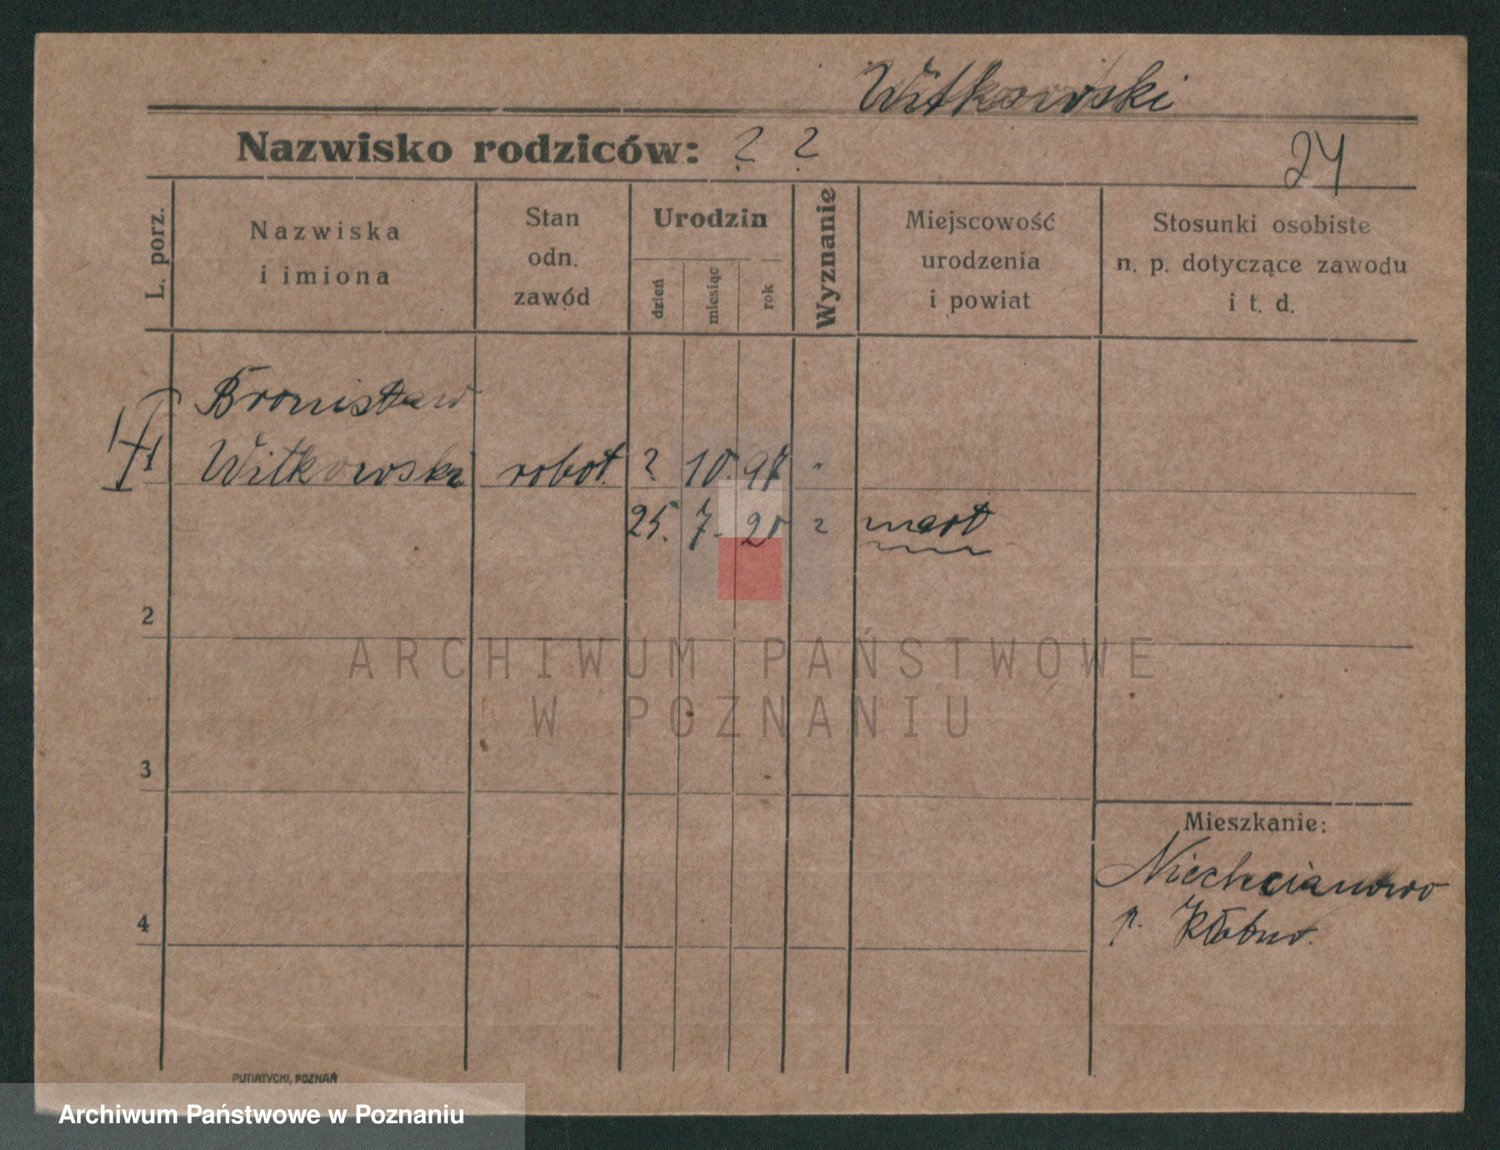 Witkowski
Nazwisko rodziców: ? ?
24
L. porz.
Nazwiska
i imiona
Stan
odn.
zawód
Urodzin
dzień
miesiąc
rok
Wyznanie
Miejscowość
urodzenia
i powiat
Stosunki osobiste
n. p. dotyczące zawodu
i t. d.
Bronisław
1 Witkowski robot. ? 10. 97 "
25. 7. 20 ?
2
3
4
Mieszkanie:
Niechcianowo
p.
ARCHIWUM PAŃSTWOWE
W POZNANIU
PUTIATYCKI, POZNAŃ
Archiwum Państwowe w Poznaniu